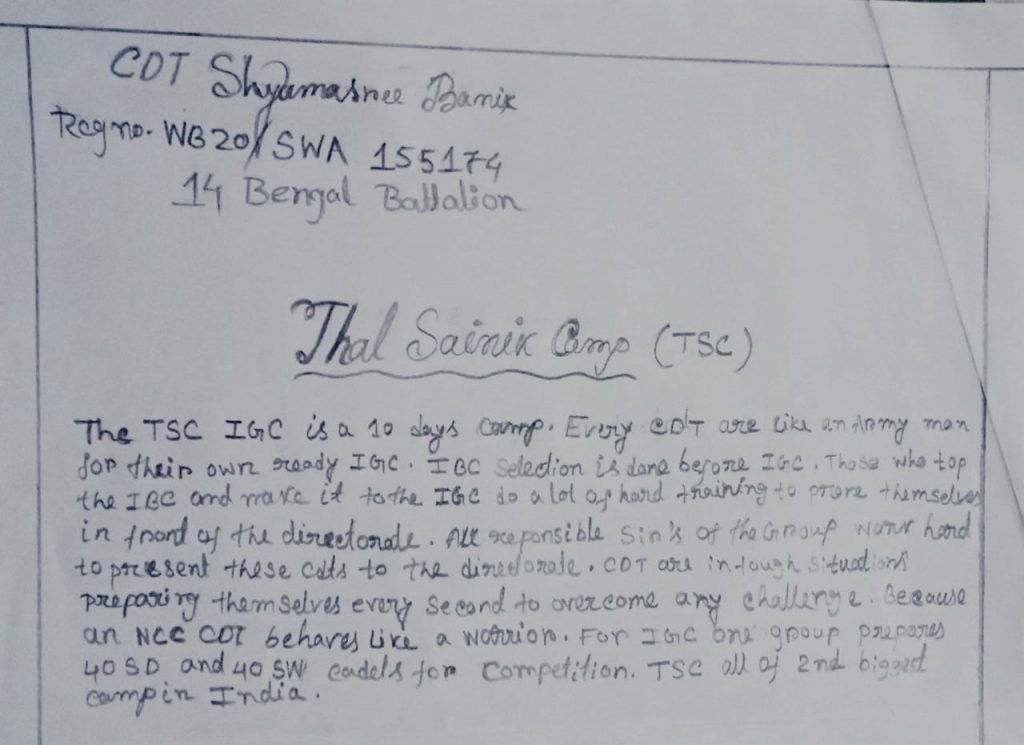 CDT Shyamasree Banik
Reg no. WB20/SWA 155174
14 Bengal Battalion
Thal Sainik Camp (TSC)
The TSC IGC is a 10 days camp. Every CDT are like an Army man
for their own ready IGC. IBC selection is done before IGC. Those who top
the IBC and make it to the IGC do a lot of hard training to prove themselves
in front of the directorate. All reponsible Sir's of the Group work hard
to present these Cdts to the directorate. CDT are in tough situations
preparing themselves every second to overcome any challenge. Because
an NCC CDT behaves like a warrior. For IGC one group prepares
40 SD and 40 SW cadets for competition. TSC all of 2nd biggest
camp in India.